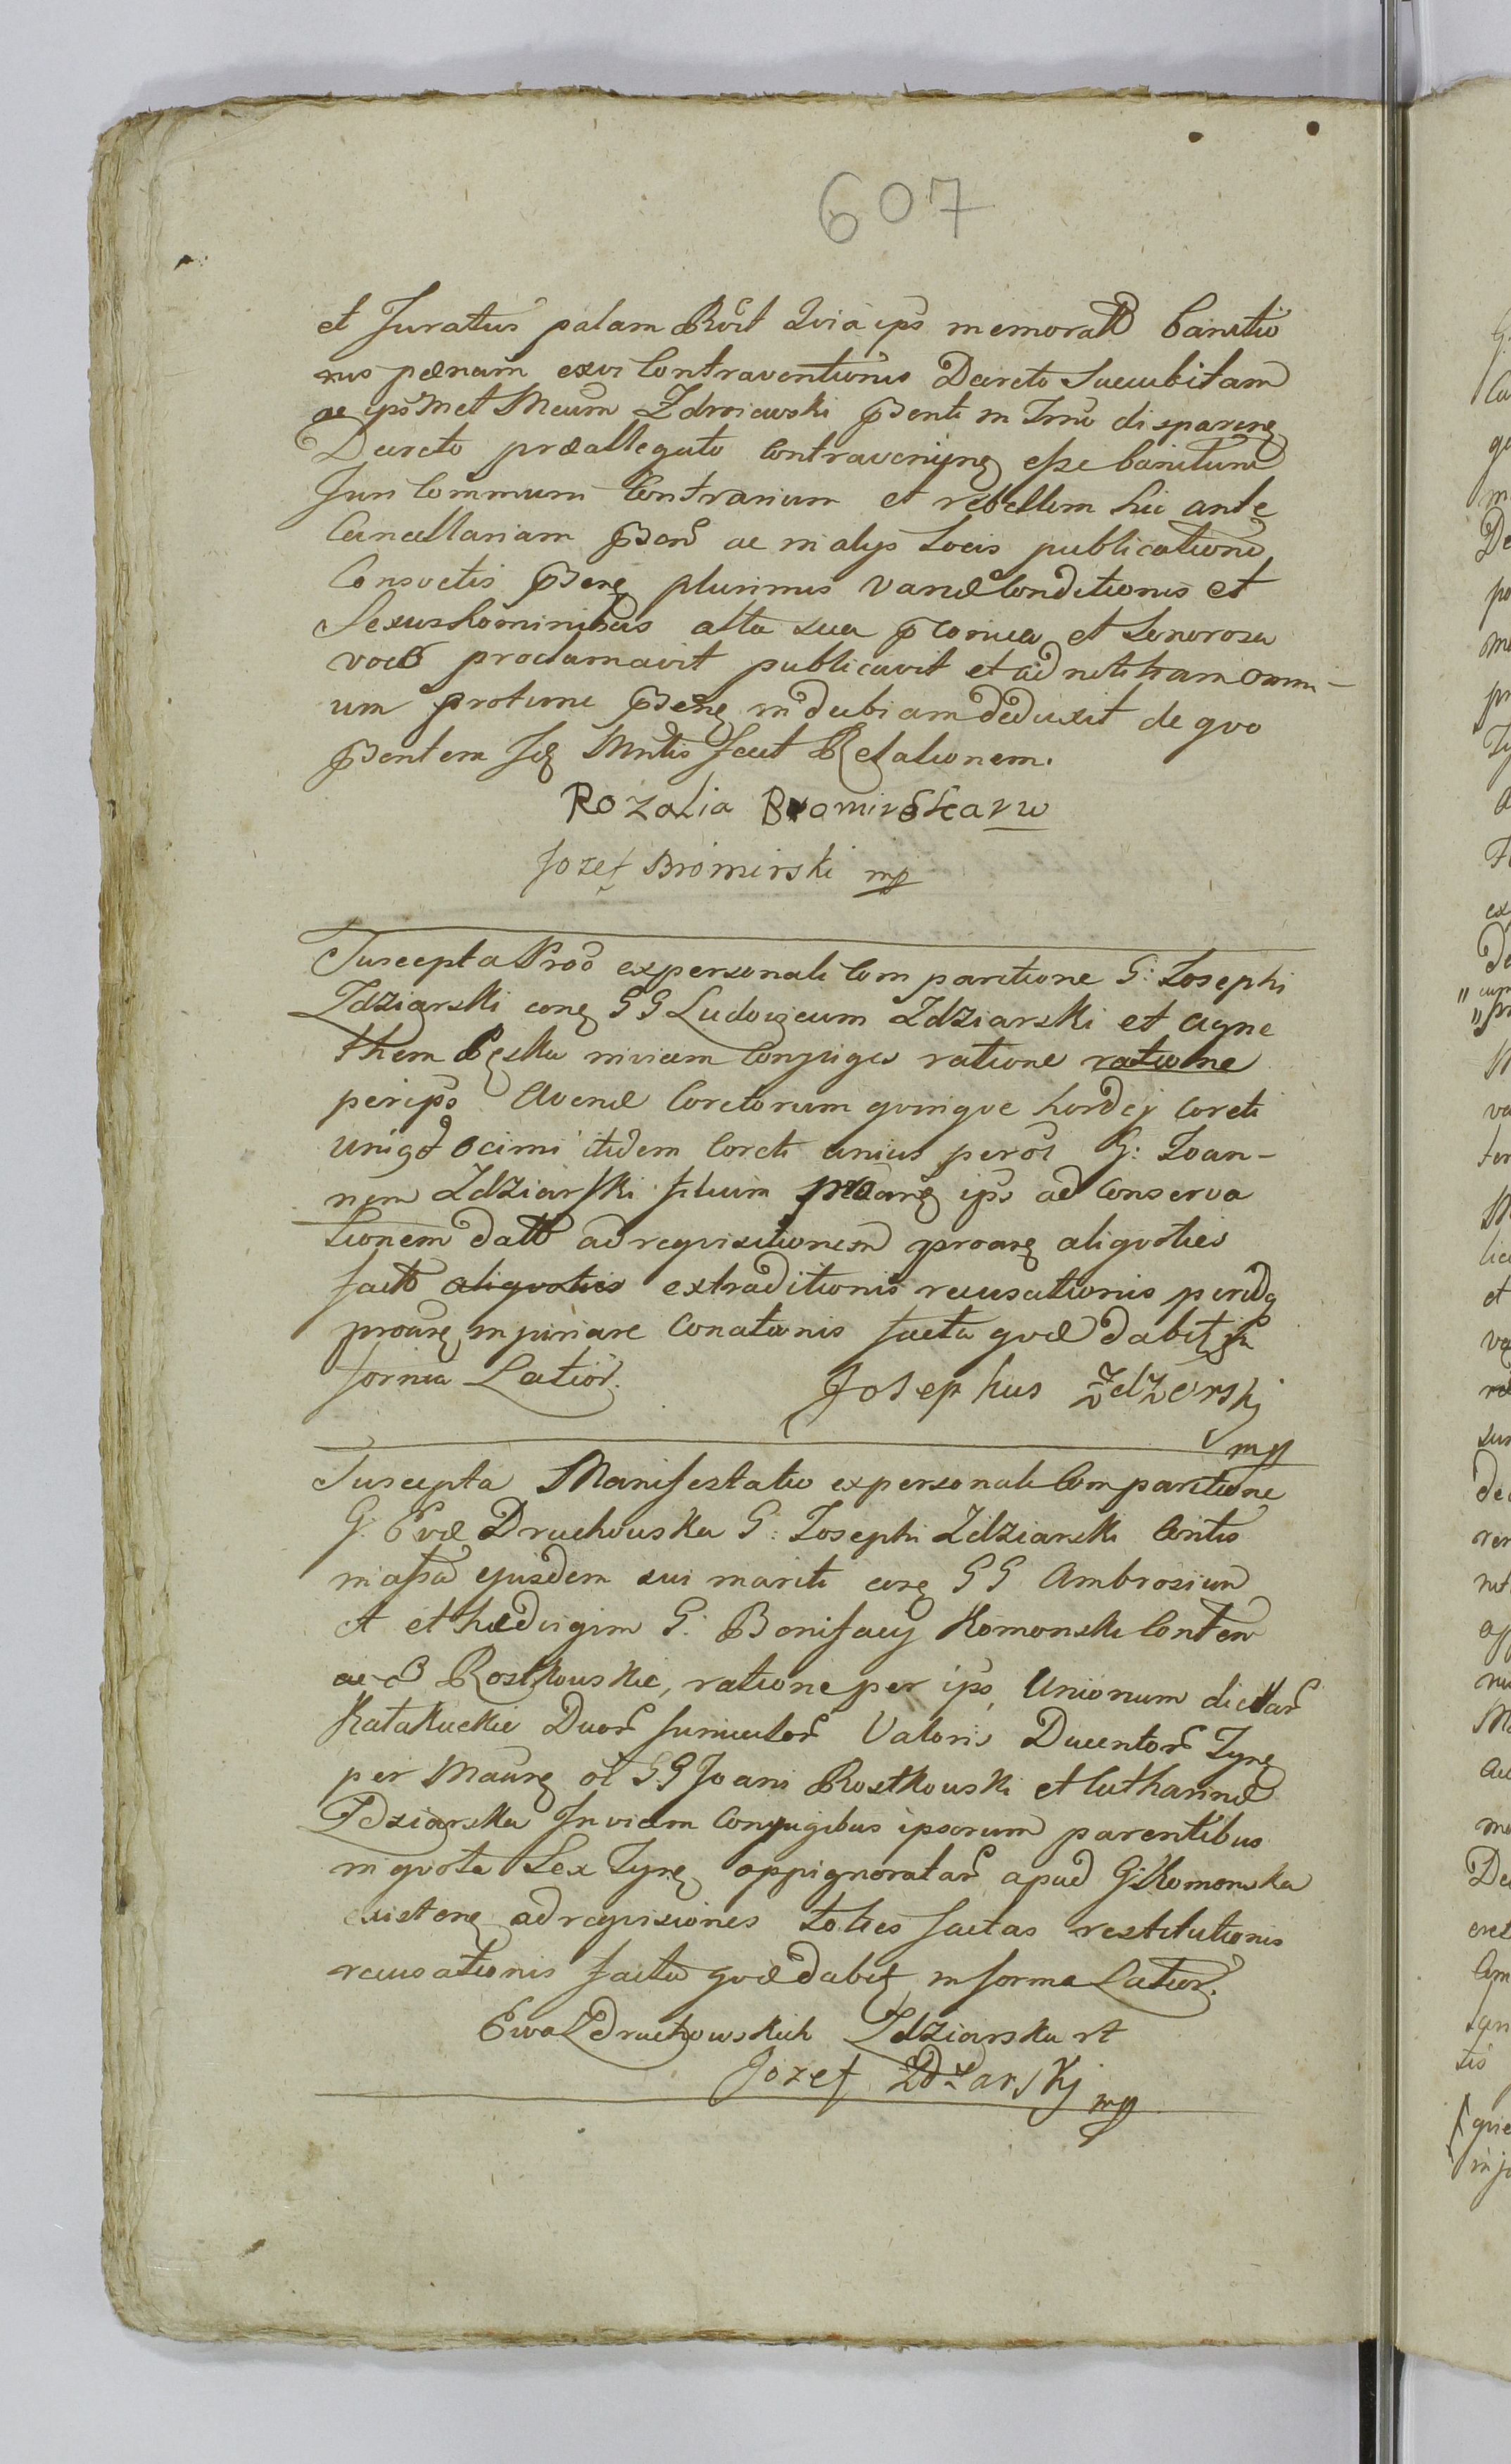 607
et Juratus palam Rŏit Qvia ips memoratt banitio
nis pœnam exvi Contraventionis Decreto Succubitam
ac ipsmet Meum Zdroiewski ꝑsenti in Trno disparenę
Decreto præallegato Contravenijnę esse banitum
Juri Communi Contrarium et rebellem hic ante
Cancellariam ꝑsen ac in alijs Locis publicationi
Consvetis ꝑsenę plurimis variæ Conditionis et
Sexus hominibus alta sua et Sonorosa
voce proclamavit publicavit et ad notitiam omni-
um protunc ꝑsenę indubiam deduxit de qvo
ꝑsentem Ję Mntis fecit Relationem.
Rozalia Bromirska
Jozef Bromirski mp
Suscepta Pro expersonali Comparitione G: Josephi
Zdziarski conę GG Ludovicum Zdziarski et Agne
them invicem Conjuges ratione ratione
perips Avenæ Coretorum qvinqve hordej Coreti
ocimi itidem Coreti unius per G: Joan-
nem Zdziarski filium ips ad Conserva
tionem datt adreqvisitionem proarę aliqvoties
factt aliqvoties extraditionis recusationis
proarę Conatonis facta qvæ dabit in
forma Latior.
Josephus Zdzerski
mp
Suscepta Manifestatio expersonali Comparitione
G: Evæ Druchowska G: Josephi Zdziarski Contis
in assa ejusdem sui mariti conę GG Ambrosium
A et hædvigim G: Bonifacij Komonski Conten
ac Rostkowskie, ratione per ips Unionum dictar
Katakuckie Duor funiculor Valoris Ducentor Tynę
per Maunę ol GG Joani Rostkowski et Catharinæ
Zdziarska Invicem Conjugibus ipsorum parentibus
in qvota Sex Tynę oppignoratar apud G: Komonska
existenę adreqvisiones toties factas restitutionis
recusationis facta qvæ dabit in forma Latior.
Ewa Zdruchowskich Zdziarska
Jozef Zdzarskj mp